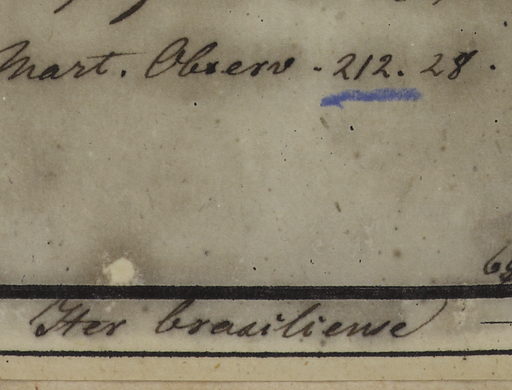 Mart. Observ. 212. 28.
Iter brasiliense